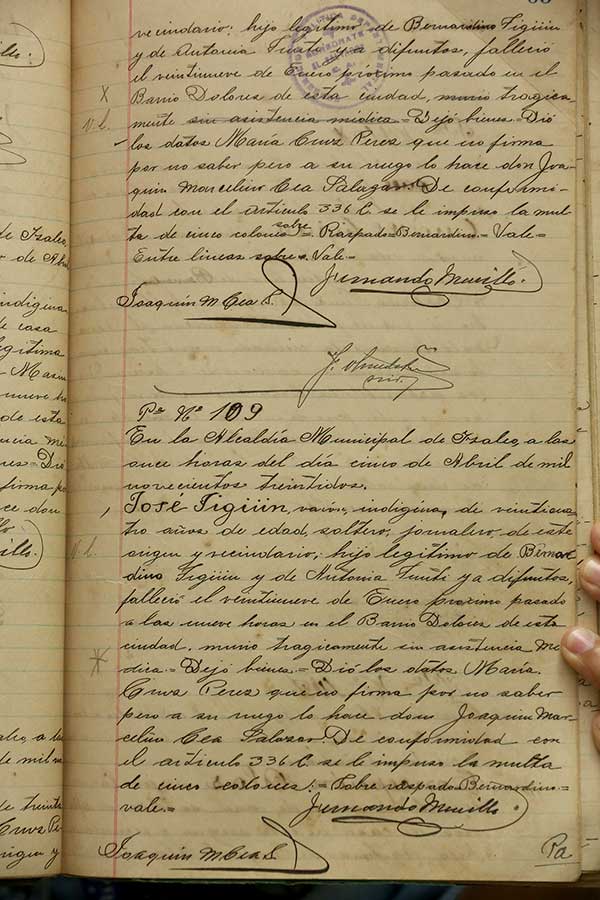 vecindario; hijo legítimo de Bernardino Tigüin
y de Antonia ya difuntos, falleció
el veintinueve de Enero próximo pasado en el
Barrio Dolores de esta ciudad, murio tragica
mente sin asistencia médica = Dejó bienes = Dió
los datos María Cruz Perez que no firma
por no saber pero a su ruego lo hace don Joa-
quin Marcelino Cea Salazar. De conformi-
dad con el artículo 336 C. se le impuso la mul-
ta de cinco colones sobre = Raspado = Bernardino = Vale =
Entre lineas = sobre = Vale =
Fernando Murillo.
Joaquin M Cea S.
srio.
Pa Nº 109
En la Alcaldía Municipal de Izalco, a las
once horas del día cinco de Abril de mil
novecientos treintidos.
José Tigüin, varon, indígena, de veinticua
tro años de edad, soltero, jornalero, de este
origen y vecindario; hijo legítimo de Bernar
dino Tigüin y de Antonia ya difuntos,
falleció el veintinueve de Enero proximo pasado
a las nueve horas en el Barrio Dolores de esta
ciudad, murio tragicamente sin asistencia me
dica. = Dejó bienes = Dió los datos María
Cruz Perez que no firma por no saber
pero a su ruego lo hace don Joaquin Mar-
celino Cea Salazar. De conformidad con
el artículo 336 C. se le impuso la multa
de cinco colones. = Sobre raspado Bernardino =
vale. =
Fernando Murillo.
Joaquin M Cea S.
Pa